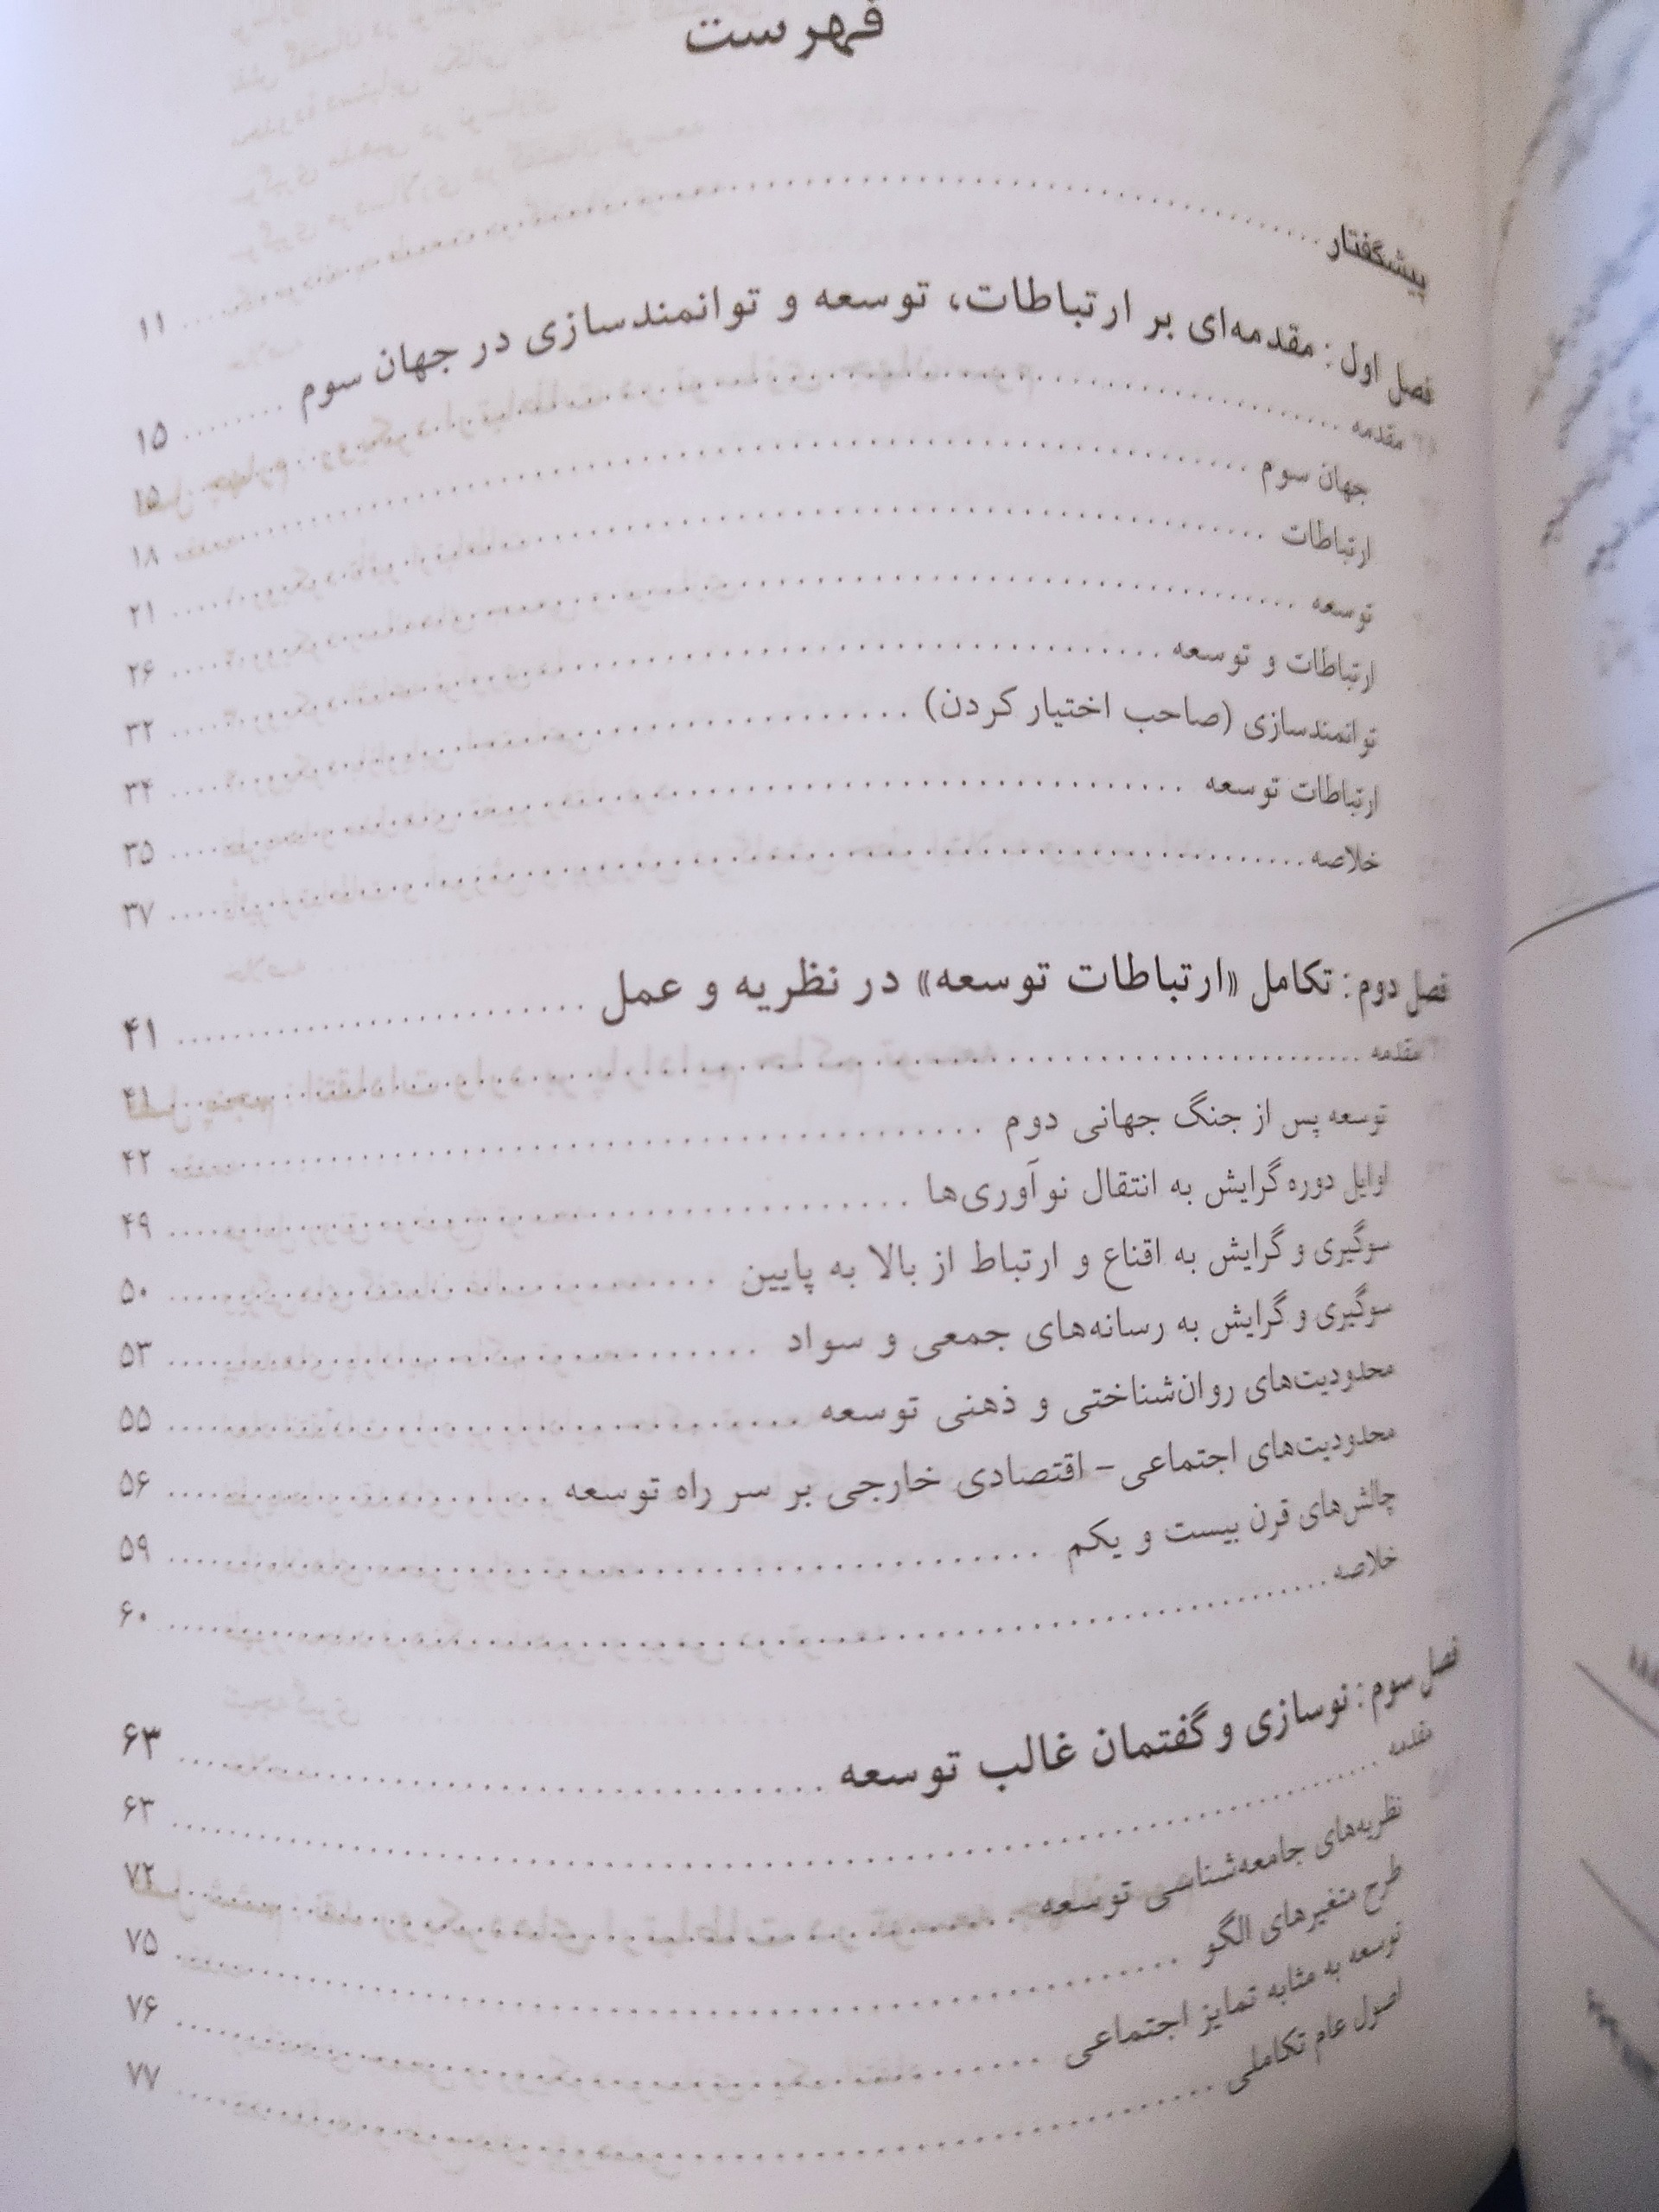 فهرست
پیشگفتار ........ ۱۱
فصل اول: مقدمه‌ای بر ارتباطات، توسعه و توانمندسازی در جهان سوم ........ ۱۵
مقدمه ........ ۱۵
جهان سوم ........ ۱۸
ارتباطات ........ ۲۱
توسعه ........ ۲۶
ارتباطات و توسعه ........ ۳۲
توانمندسازی (صاحب اختیار کردن) ........ ۳۴
ارتباطات توسعه ........ ۳۵
خلاصه ........ ۳۷
فصل دوم: تکامل «ارتباطات توسعه» در نظریه و عمل ........ ۴۱
مقدمه ........ ۴۱
توسعه پس از جنگ جهانی دوم ........ ۴۲
اوایل دوره گرایش به انتقال نوآوری‌ها ........ ۴۹
سوگیری و گرایش به اقناع و ارتباط از بالا به پایین ........ ۵۰
سوگیری و گرایش به رسانه‌های جمعی و سواد ........ ۵۳
محدودیت‌های روان‌شناختی و ذهنی توسعه ........ ۵۵
محدودیت‌های اجتماعی - اقتصادی خارجی بر سر راه توسعه ........ ۵۶
چالش‌های قرن بیست و یکم ........ ۵۹
خلاصه ........ ۶۰
فصل سوم: نوسازی و گفتمان غالب توسعه ........ ۶۳
مقدمه ........ ۶۳
نظریه‌های جامعه‌شناسی توسعه ........ ۷۲
طرح متغیرهای الگو ........ ۷۵
توسعه به مثابه تمایز اجتماعی ........ ۷۶
اصول عام تکاملی ........ ۷۷